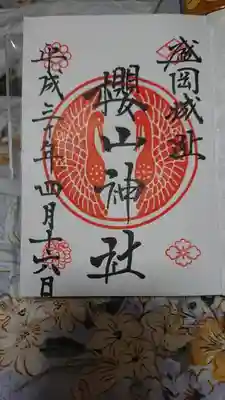 盛岡城址
櫻山神社
平成三十年四月十六日